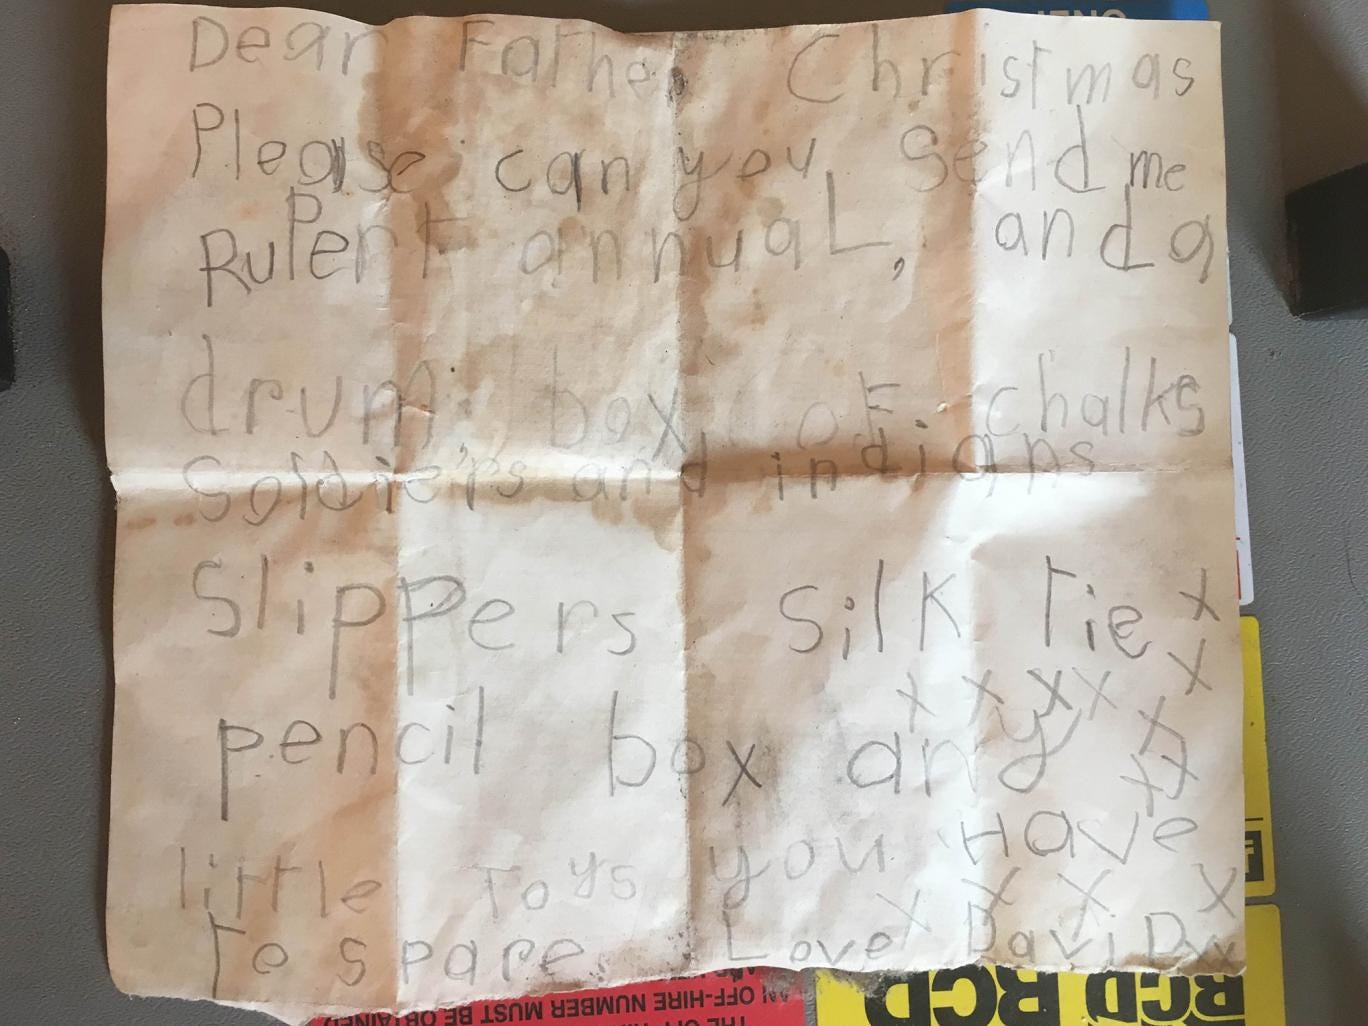 Dear Father Christmas
Please can you Send me
Rupert annual, and a
drum box oF chalks
Soldiers and indians
Slippers Silk Tie x
x
x x x x
pencil box any x
x x
little Toys you Have
x x x x
To spare. Love DaviD xx
AN OFF-HIRE NUMBER MUST BE OBTAINED
RCD RCD